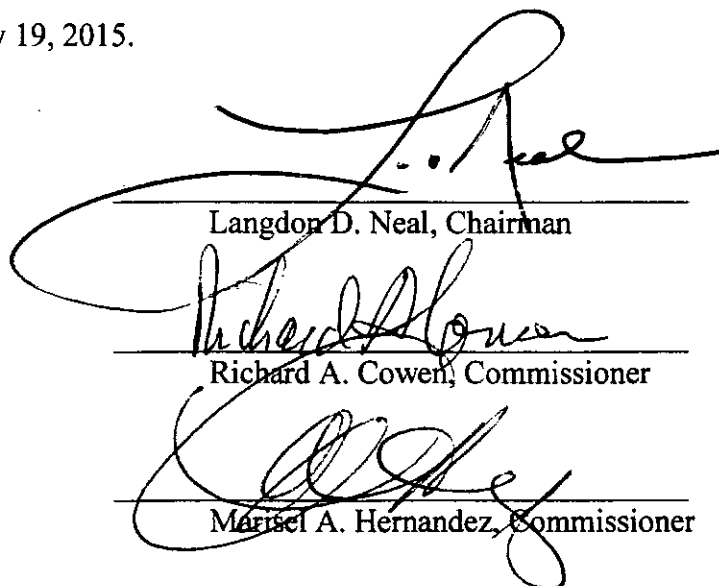 y 19, 2015.
Neal
Langdon D. Neal, Chairman
Richard A Cowen
Richard A. Cowen, Commissioner
Marisel A. Hernandez, Commissioner